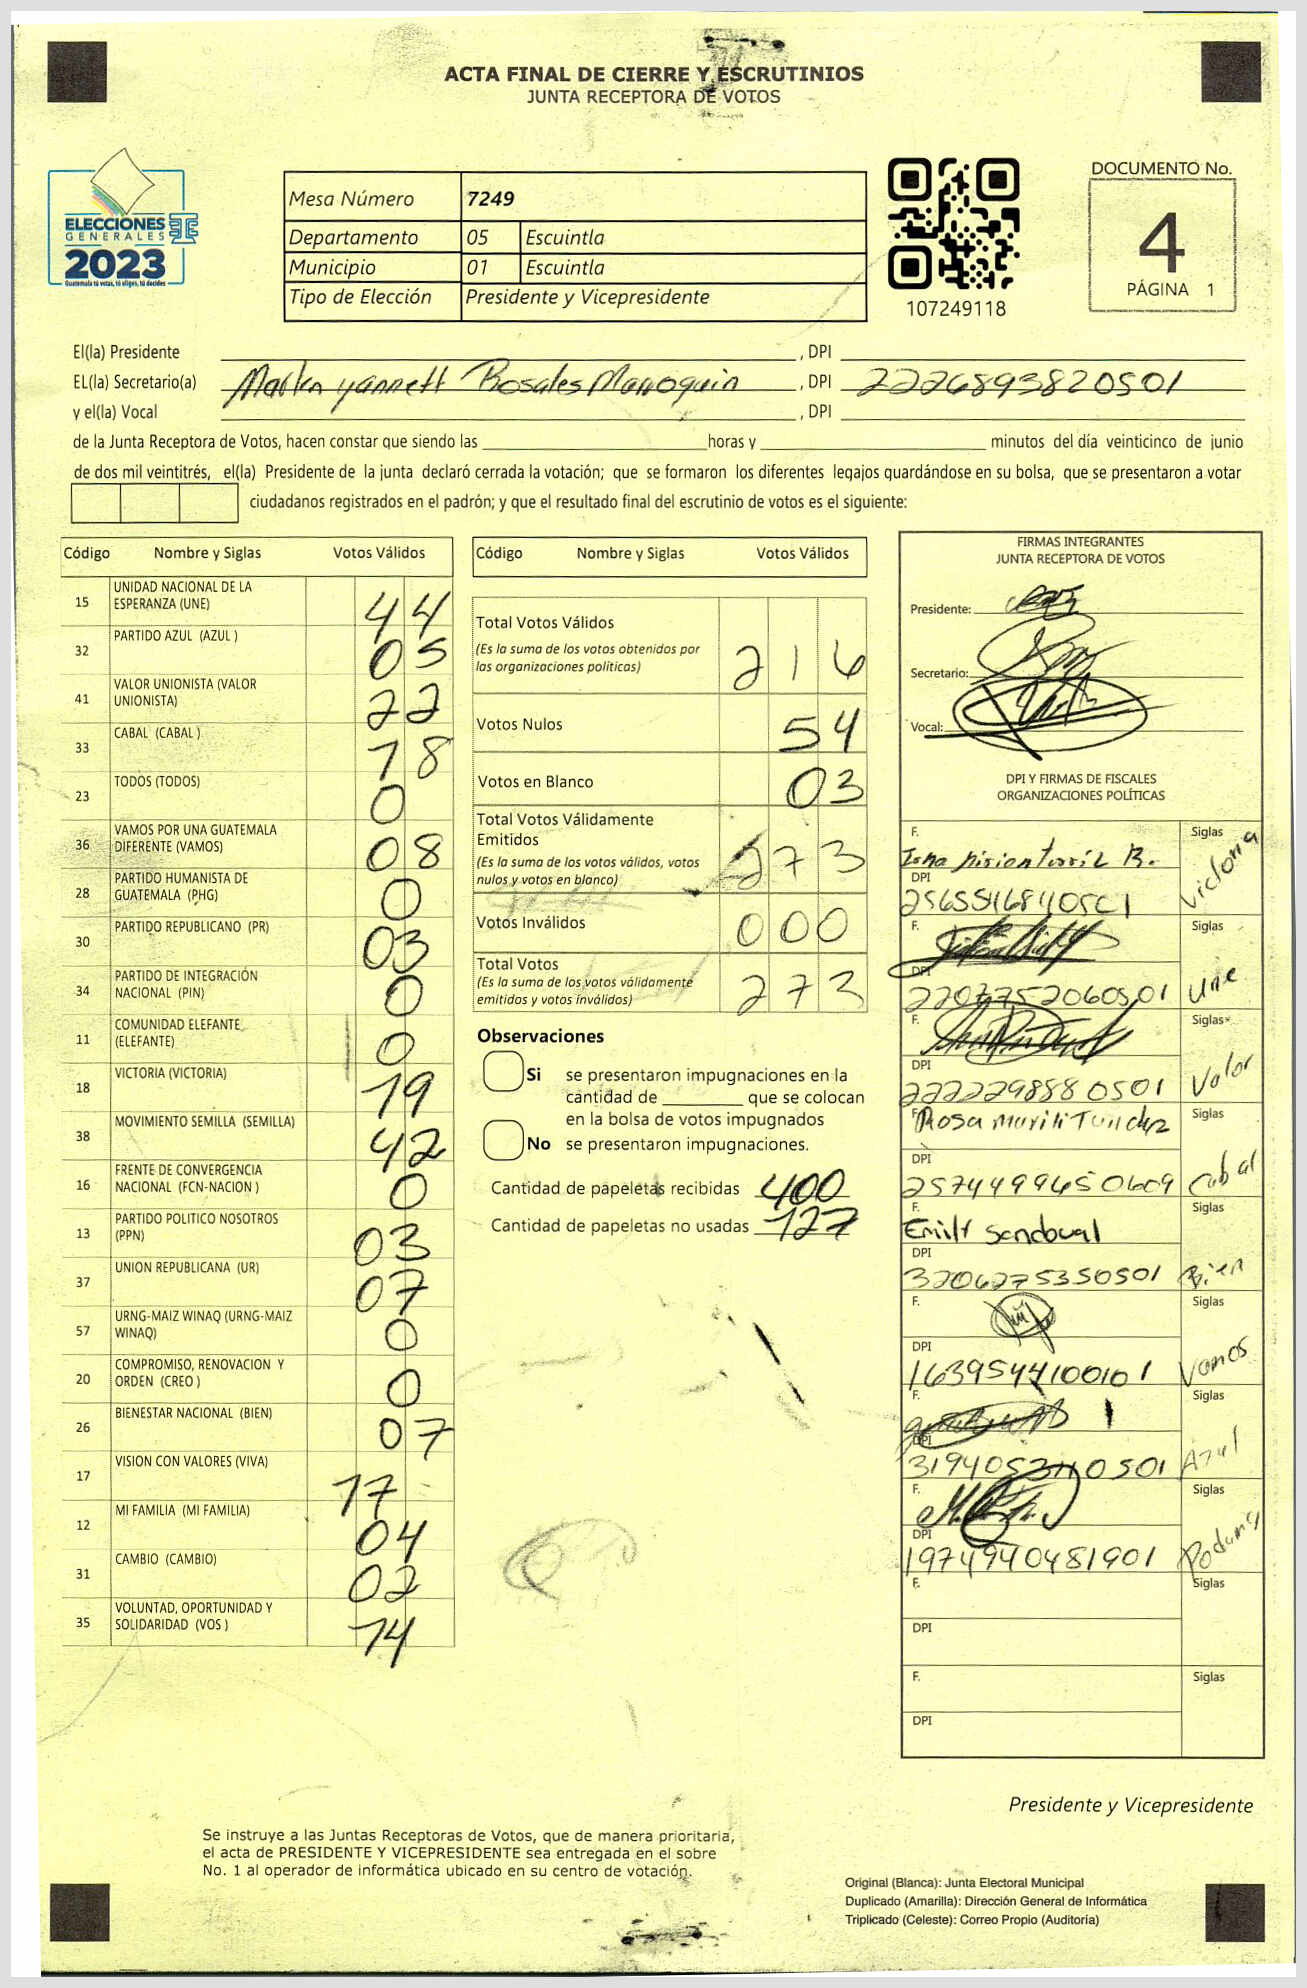 ACTA FINAL DE CIERRE Y ESCRUTINIOS
JUNTA RECEPTORA DE VOTOS
ELECCIONES
GENERALES
2023
Guatemala tú votas, tú eliges, tú decides
Mesa Número 7249
Departamento 05 Escuintla
Municipio 01 Escuintla
Tipo de Elección Presidente y Vicepresidente
107249118
DOCUMENTO No.
4
PÁGINA 1
El(la) Presidente , DPI
EL(la) Secretario(a) Marlen yannett Rosales Marroquin , DPI 2226893820501
y el(la) Vocal , DPI
de la Junta Receptora de Votos, hacen constar que siendo las horas y minutos del día veinticinco de junio
de dos mil veintitrés, el(la) Presidente de la junta declaró cerrada la votación; que se formaron los diferentes legajos guardándose en su bolsa, que se presentaron a votar
ciudadanos registrados en el padrón; y que el resultado final del escrutinio de votos es el siguiente:
Código Nombre y Siglas Votos Válidos
15 UNIDAD NACIONAL DE LA ESPERANZA (UNE) 44
32 PARTIDO AZUL (AZUL ) 05
41 VALOR UNIONISTA (VALOR UNIONISTA) 22
33 CABAL (CABAL ) 18
23 TODOS (TODOS) 0
36 VAMOS POR UNA GUATEMALA DIFERENTE (VAMOS) 08
28 PARTIDO HUMANISTA DE GUATEMALA (PHG) 0
30 PARTIDO REPUBLICANO (PR) 03
34 PARTIDO DE INTEGRACIÓN NACIONAL (PIN) 0
11 COMUNIDAD ELEFANTE (ELEFANTE) 0
18 VICTORIA (VICTORIA) 19
38 MOVIMIENTO SEMILLA (SEMILLA) 42
16 FRENTE DE CONVERGENCIA NACIONAL (FCN-NACION ) 0
13 PARTIDO POLITICO NOSOTROS (PPN) 03
37 UNION REPUBLICANA (UR) 07
57 URNG-MAIZ WINAQ (URNG-MAIZ WINAQ) 0
20 COMPROMISO, RENOVACION Y ORDEN (CREO ) 0
26 BIENESTAR NACIONAL (BIEN) 07
17 VISION CON VALORES (VIVA) 17
12 MI FAMILIA (MI FAMILIA) 04
31 CAMBIO (CAMBIO) 02
35 VOLUNTAD, OPORTUNIDAD Y SOLIDARIDAD (VOS ) 14
Código Nombre y Siglas Votos Válidos
Total Votos Válidos
(Es la suma de los votos obtenidos por
las organizaciones políticas) 216
Votos Nulos 54
Votos en Blanco 03
Total Votos Válidamente
Emitidos
(Es la suma de los votos válidos, votos
nulos y votos en blanco) 273
Votos Inválidos 000
Total Votos
(Es la suma de los votos válidamente
emitidos y votos inválidos) 273
Observaciones
Si se presentaron impugnaciones en la
cantidad de que se colocan
en la bolsa de votos impugnados
No se presentaron impugnaciones.
Cantidad de papeletas recibidas 400
Cantidad de papeletas no usadas 127
FIRMAS INTEGRANTES
JUNTA RECEPTORA DE VOTOS
Presidente:
Secretario:
Vocal:
DPI Y FIRMAS DE FISCALES
ORGANIZACIONES POLÍTICAS
F. Siglas Victoria
DPI 2565546840501
F. Siglas Une
DPI 2207752060501
F. Siglas Valor
DPI 2222298880501
F. Rosa Siglas Cabal
DPI 2574499450609
F. Emilt Sandoval Siglas Bien
DPI 3206275350501
F. Siglas Vamos
DPI 1639544100101
F. Siglas Azul
DPI 3194053110501
F. Siglas
DPI 1974940481901
F. Siglas
DPI
F. Siglas
DPI
Presidente y Vicepresidente
Se instruye a las Juntas Receptoras de Votos, que de manera prioritaria,
el acta de PRESIDENTE Y VICEPRESIDENTE sea entregada en el sobre
No. 1 al operador de informática ubicado en su centro de votación.
Original (Blanca): Junta Electoral Municipal
Duplicado (Amarilla): Dirección General de Informática
Triplicado (Celeste): Correo Propio (Auditoría)